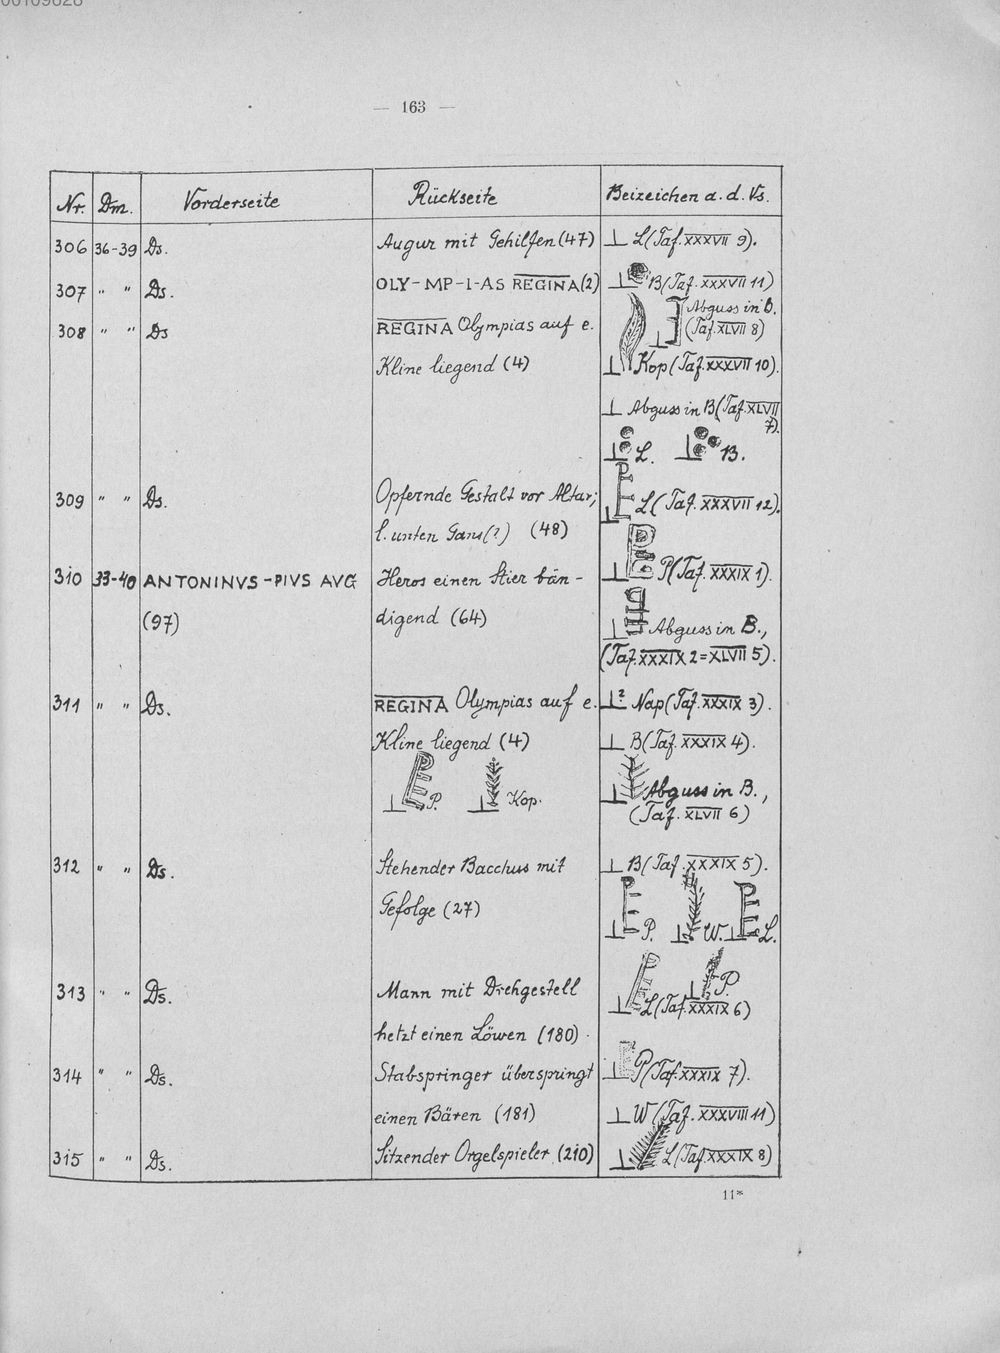 — 163 —
Nr. Dm. Vorderseite Rückseite Beizeichen a. d. Vs.
306 36-39 Ds. Augur mit Gehilfen (47) ⊥ L (Taf. XXXVII 9).
307 " " Ds. OLY-MP-I-AS REGINA (2) ⊥ B (Taf. XXXVII 11)
308 " " Ds REGINA Olympias auf e. Abguss in B.
(Taf. XLVII 8)
Kline liegend (4) ⊥ Kop (Taf. XXXVII 10).
⊥ Abguss in B (Taf. XLVII
7).
⊥ L. ⊥ B.
309 " " Ds. Opfernde Gestalt vor Altar; ⊥ L (Taf. XXXVII 12).
l. unten Gans (?) (48)
310 33-40 ANTONINVS-PIVS AVG Heros einen Stier bän- ⊥ P (Taf. XXXIX 1).
(97) digend (64) ⊥ Abguss in B.,
(Taf. XXXIX 2 = XLVII 5).
311 " " Ds. REGINA Olympias auf e. ⊥ ² Nap (Taf. XXXIX 3).
Kline liegend (4) ⊥ B (Taf. XXXIX 4).
⊥ PE P. ⊥ Kop. ⊥ Abguss in B.,
(Taf. XLVII 6)
312 " " Ds. Stehender Bacchus mit ⊥ B (Taf. XXXIX 5).
Gefolge (27) ⊥ PE P. ⊥ W. ⊥ PE L.
313 " " Ds. Mann mit Drehgestell ⊥ P
⊥ PE L (Taf. XXXIX 6)
hetzt einen Löwen (180).
314 " " Ds. Stabspringer überspringt ⊥ P (Taf. XXXIX 7).
einen Bären (181) ⊥ W (Taf. XXXVIII 11)
315 " " Ds. Sitzender Orgelspieler (210) ⊥ L (Taf XXXIX 8)
11*